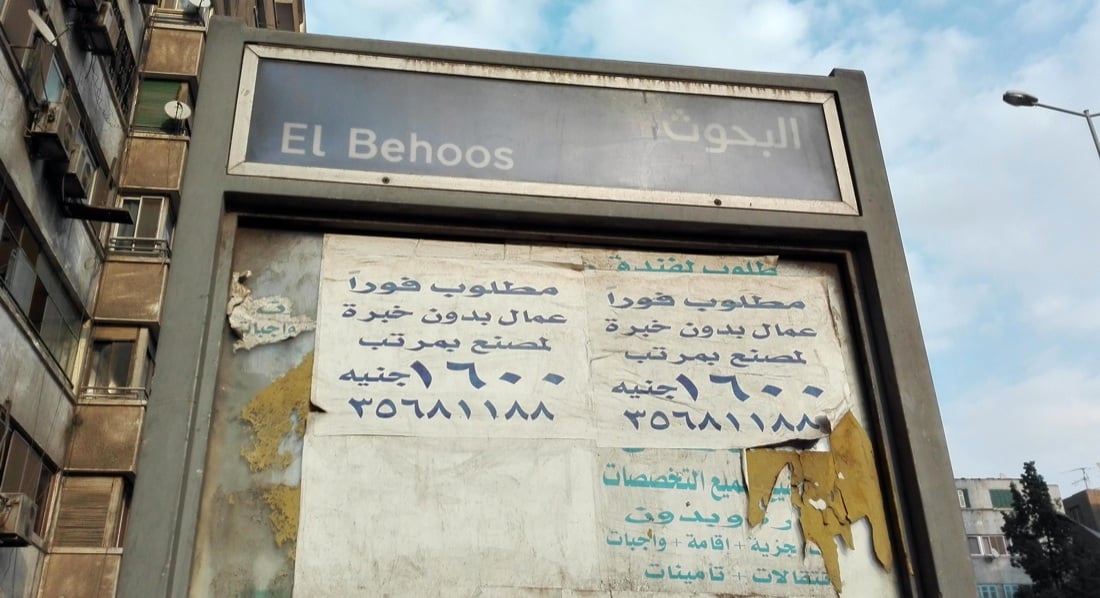 El Behoos
البحوث
لفندق
مطلوب فوراً
عمال بدون خبرة
لمصنع بمرتب
١٦٠٠ جنيه
٣٥٦٨١١٨٨
مطلوب فوراً
عمال بدون خبرة
لمصنع بمرتب
١٦٠٠ جنيه
٣٥٦٨١١٨٨
واجبات
التخصصات
وبدون
مجزية + اقامة + واجبات
+ تأمينات